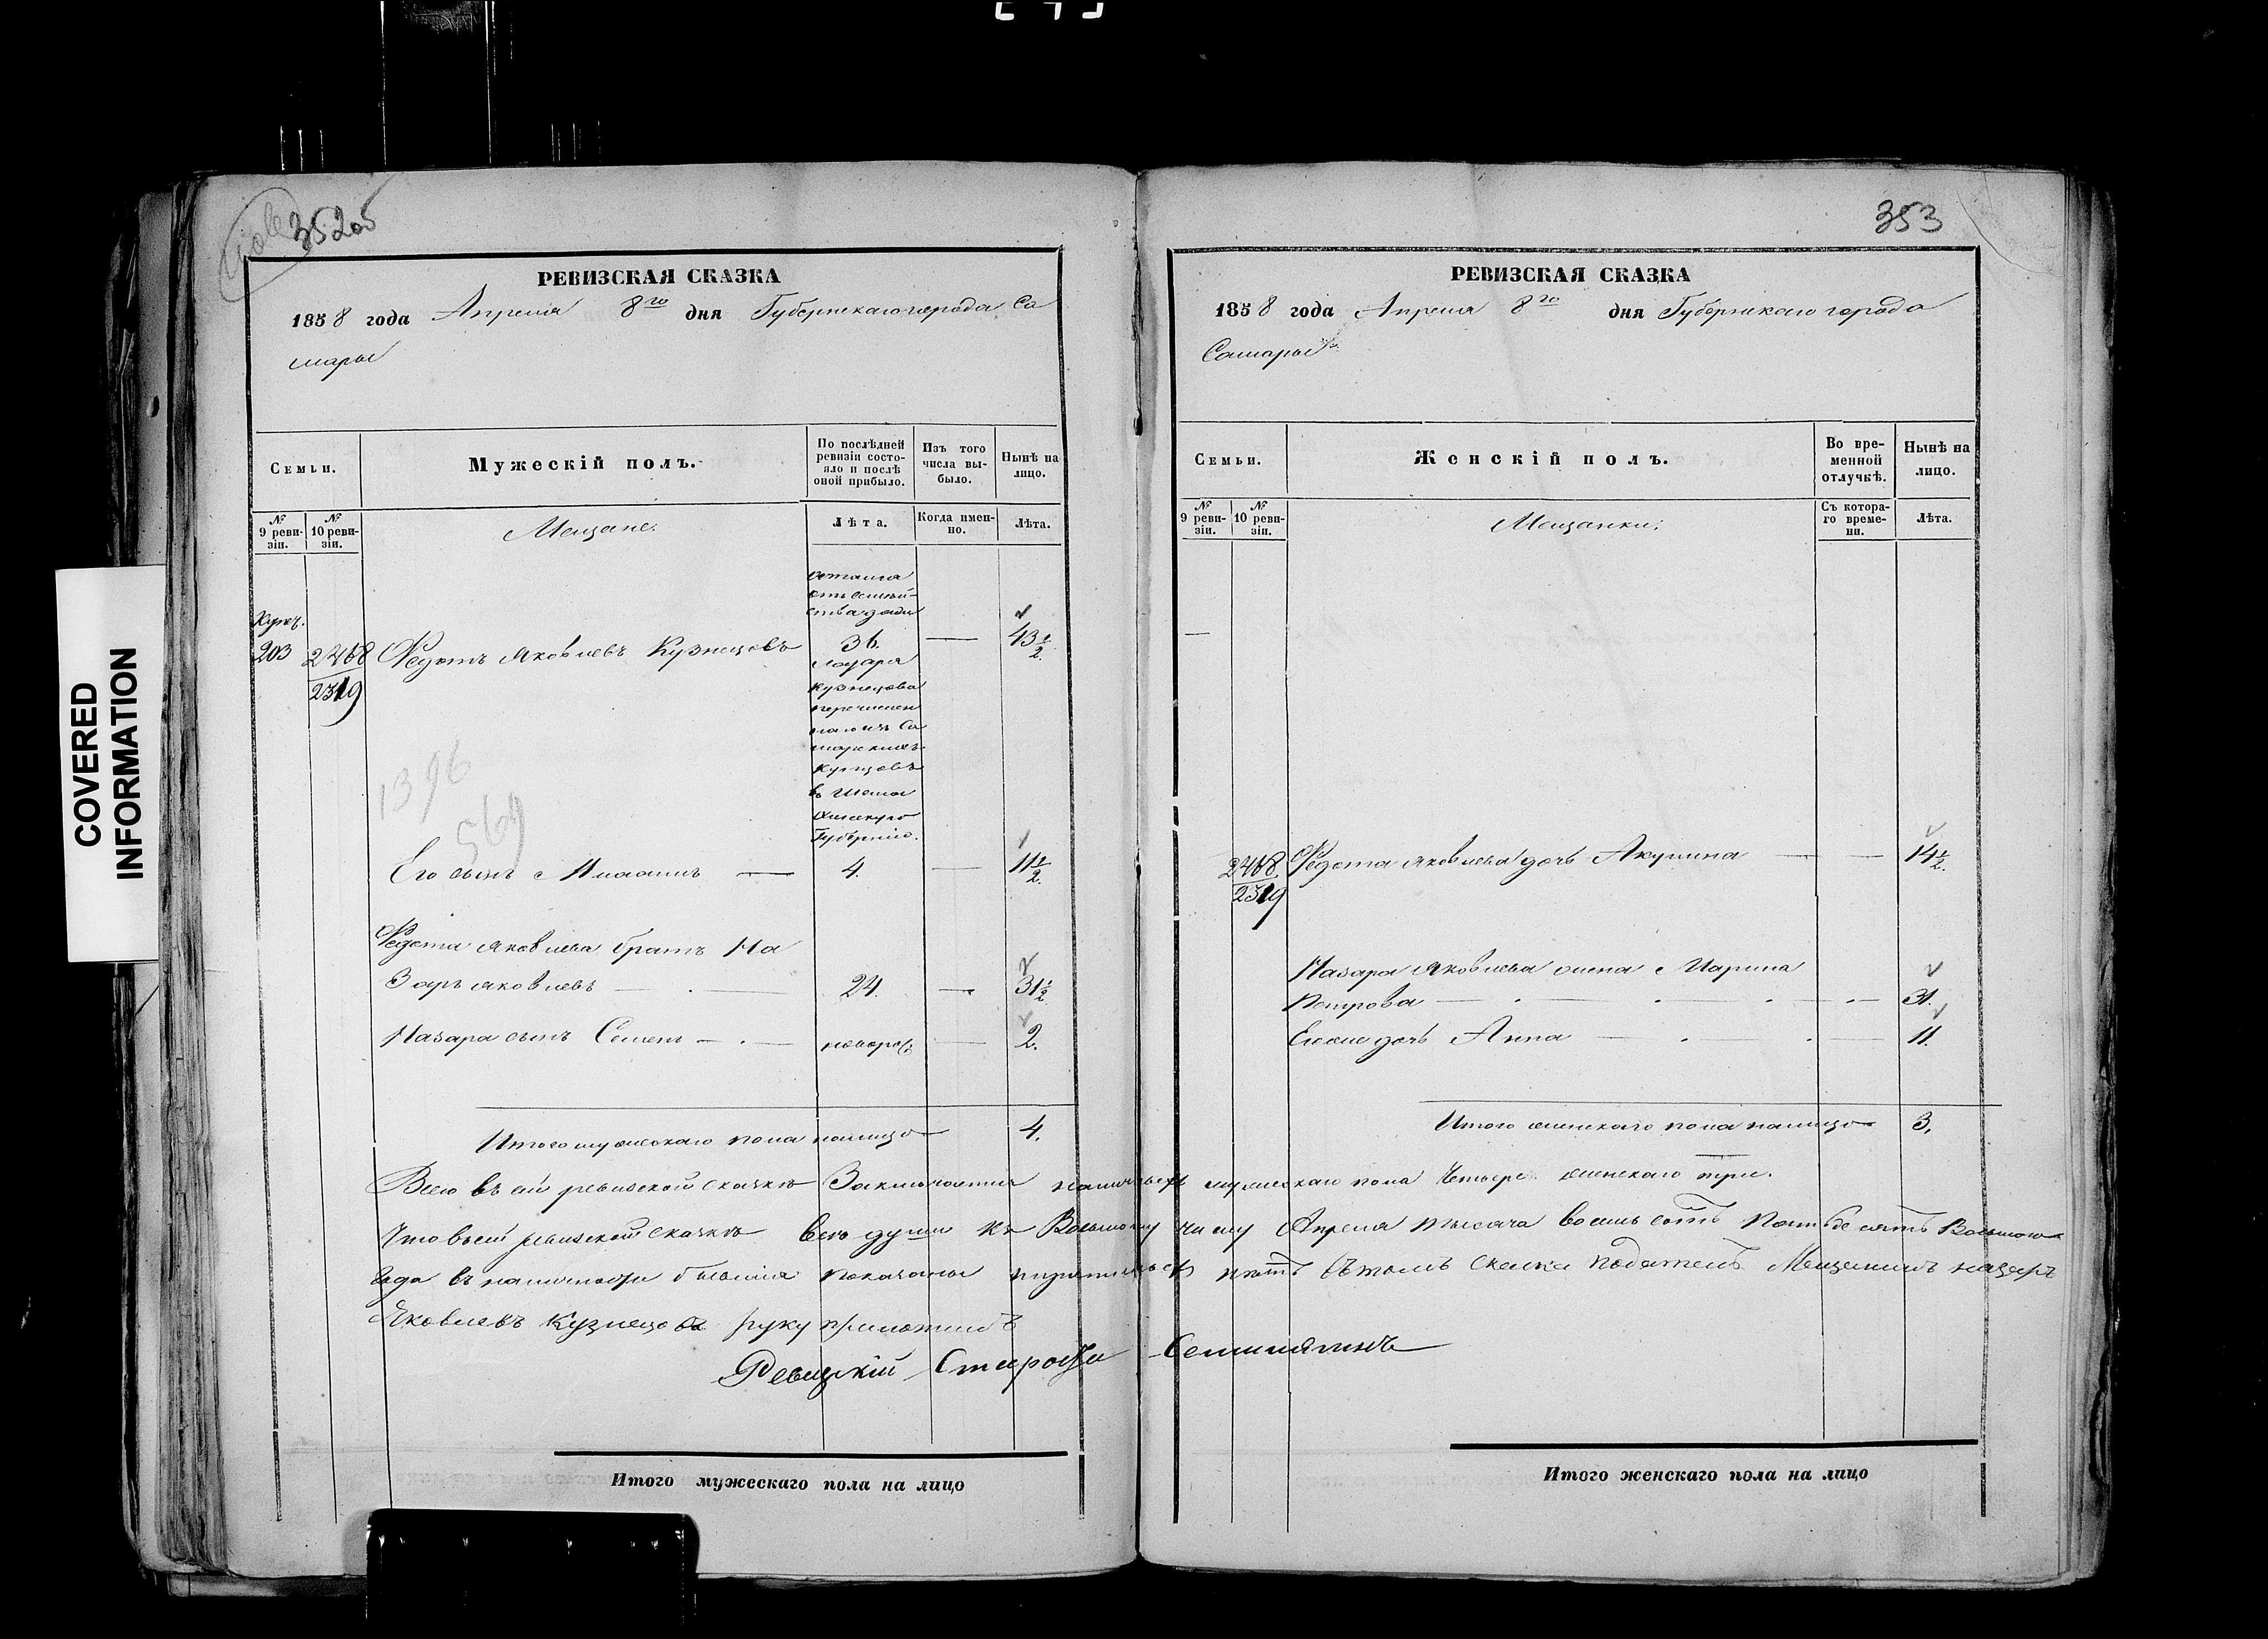 352об
РЕВИЗСКАЯ СКАЗКА
1858 года Апреля 8го дня Губернскаго города Са
мары
Семьи.
Мужескій полъ.
По послѣдней ревизіи состояло и послѣ оной прибыло.
Изъ того числа выбыло.
Нынѣ на лицо.
№ 9 ревизіи.
№ 10 ревизіи.
Мещане:
Лѣта.
Когда именно.
Лѣта.
Купч.
203
2468
2319
Федотъ Яковлевъ Кузнецовъ
остался
отъ семей-
ства дяди
36.
Лазаря
Кузнецова
перечислен
наго изъ Са
марскихъ
Купцовъ
въ Шема
хинскую
Губернію.
—
43 1/2
1396
569
Его сынъ — 4. — 11 1/2.
Федота Яковлева братъ На
заръ Яковлевъ — 24. — 31 1/2
Назара сынъ Семенъ — новорож — 2.
Итого мужескаго пола налицо 4.
353
РЕВИЗСКАЯ СКАЗКА
1858 года Апреля 8го дня Губернскаго города
Самары
Семьи.
Женскій полъ.
Во временной отлучкѣ.
Нынѣ на лицо.
№ 9 ревизіи.
№ 10 ревизіи.
Мещанки:
Съ котораго времени.
Лѣта.
—
2468
2319
Федота Яковлева дочь Акулина — — 14 1/2.
Назара Яковлева жена Марина
Петрова — — 31.
Ихъ дочь Анна — — 11.
Итого женскаго пола налицо 3.
Всего въ сей ревизской сказкѣ Заключается наличныхъ мужескаго пола Четыре женскаго три.
Что въ сей ревизской сказкѣ всѣ души къ Восьмому числу Апреля тысяча восемь сотъ Пятьдесятъ Восьмого
года въ наличности бывшія показаны и прописныхъ нѣтъ въ томъ Сказки податель Мещанинъ назаръ
Яковлевъ Кузнецовъ руку приложилъ
Ревизкій Староста
Итого мужескаго пола на лицо
Итого женскаго пола на лицо
COVERED
INFORMATION